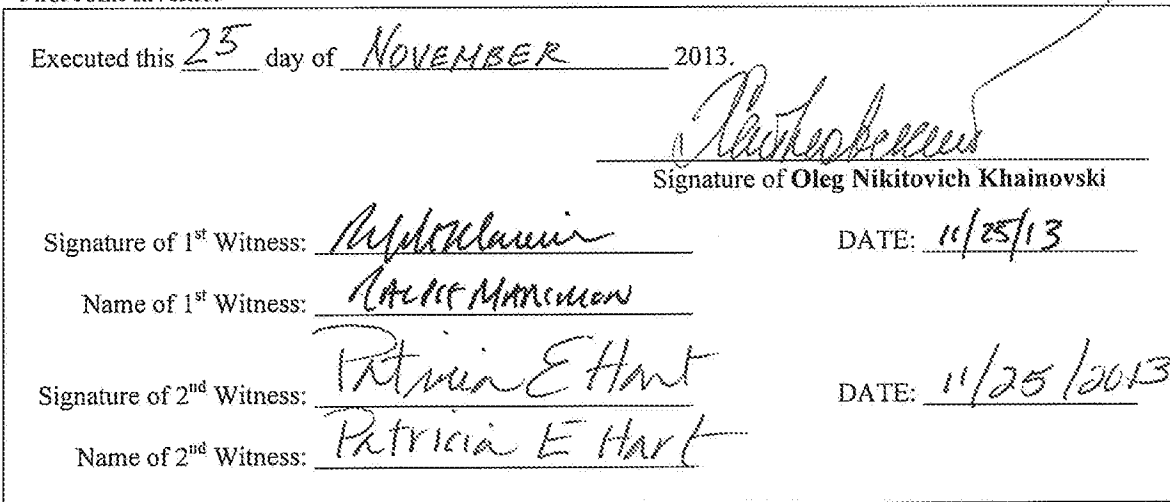 Executed this 25 day of NOVEMBER 2013.
Signature of Oleg Nikitovich Khainovski
Signature of 1st Witness: DATE: 11/25/13
Name of 1st Witness:
Signature of 2nd Witness: Patricia E Hart DATE: 11/25/2013
Name of 2nd Witness: Patricia E Hart